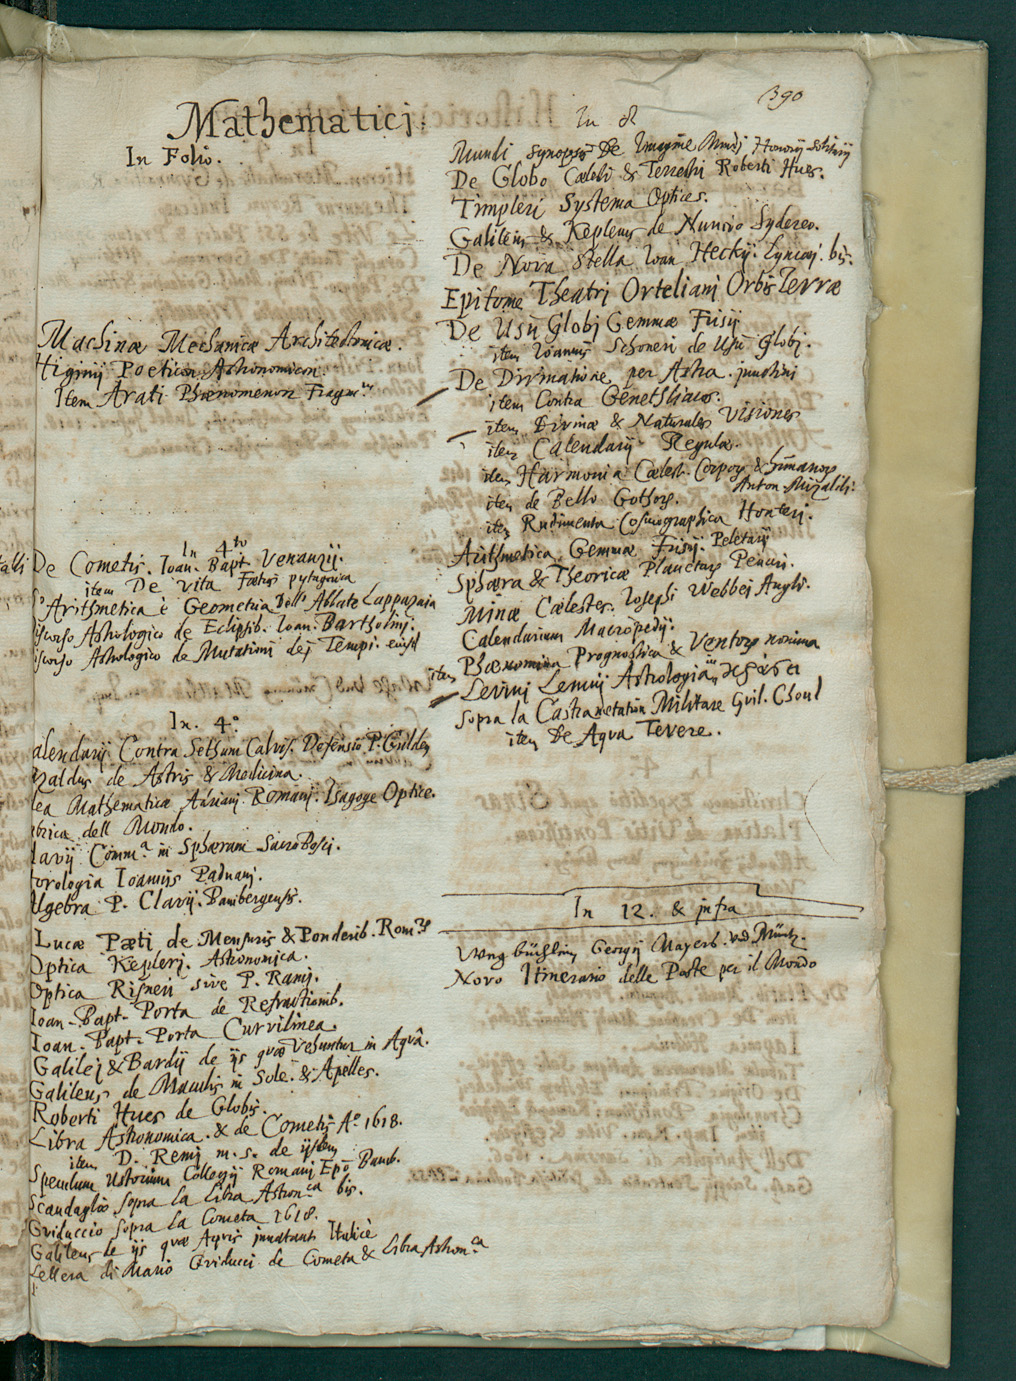 390
Mathematicj.
In Folio.
Machinæ Mechanicæ Architectonicæ.
Higinij Poeticon Astronomicon.
Item Arati Phænomenon Fragm.
In 4to
De Cometis. Ioan. Bapt. Venanzij.
item De Vita Fœtus
Arithmetica è Geometria dell' Abbate Lappazaia
Astrologico de Eclipsib. Ioan. Bartholinj.
Astrologico de Mutationi dej Tempi.
In. 4°
alendarij Contra Sethum Calvis. Defensio P. Guldin
zaldus de Astris & Medicina.
ea Mathematica Adriani Romani. Isagoge Optice.
brica dell Mondo.
lavij Comm.a in Sphæram Sacro Bosci.
orologia Ioannis Paduanj.
Algebra P. Clavij. Bambergensis.
Lucæ Pæti de Mensuris & Ponderib. Rom.is
Optica Kepleri. Astronomica.
Optica Risneri sive P. Ramj.
Ioan. Bapt. Porta de Refractionib.
Ioan. Bapt. Porta Curvilinea.
Galilej & Bardij de ijs quæ Vehuntur in Aquâ.
Galileus de Maculis in Sole. & Apelles.
Roberti Hues de Globis.
Libra Astronomica. & de Cometis A° 1618.
item D. Remj m. s. de ijsdem
Speculum Ustorium Collegij Romanj Bamb.
Scandaglio sopra la Libra Astron.ca bis.
Guiduccio sopra la Cometa 1618.
Galileus de ijs quæ Aquis innatant Italicè
Lettera di Mario Guiducci de Cometa & Libra Astron.ca
In 8
Mundi Synopsis De Imagine Mundj Honorij Solitarij
De Globo Cælesti & Terrestri Roberti Hues.
Timpleri Systema Optices.
Galileus & Keplerus de Nuncio Sydereo.
De Nova Stella Ioan Heckij. Lyncæj. bis.
Epitome Theatrj Ortelianj Orbis Terræ
De Usu Globj Gemmæ Frisij
item Ioannis Schoneri de Usu Globj.
De Divinatione per Astra.
item Contra Genethliacos.
item Divinæ & Naturales Visiones
item Calendarij Regulæ.
item Harmonia Cælest. Corpor. & humanor.
Anton. Mizaldi.
item de Bello Gothor.
item Rudimenta Cosmographica Honteri.
Arithmetica Gemmæ Frisij. Peletarij
Sphæra & Theoricæ Planetar. Penari.
Minæ Cælestes. Iosephi Webbei Angli.
Calendarium Macropedij.
item Phænomina Prognostica & Ventor. nomina
Levinj Lemnij Astrologia
sopra la Castrametation Militare Guil. Choul
item De Aqua Tevere.
In 12. & infra
Georgij Mayers. Müntz.
Novo Itinerario delle Poste per il Mondo